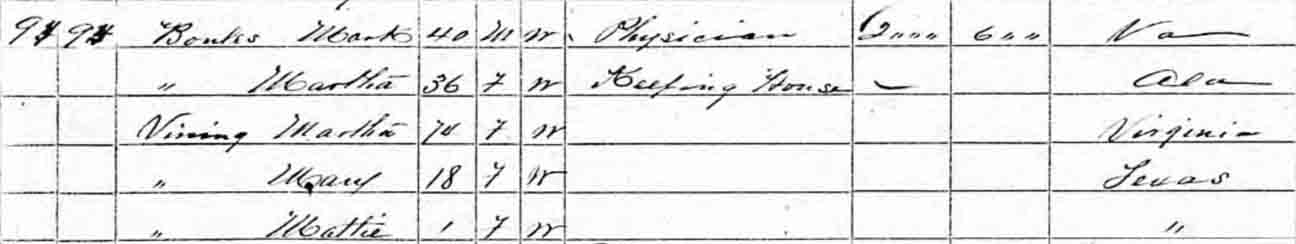 94 94 Bonks Mark 40 M W Physician 2000 600 Va
" Martha 36 F W Keeping House — Ala
Vining Martha 74 F W Virginia
" Mary 18 F W Texas
" Mattie 1 F W "